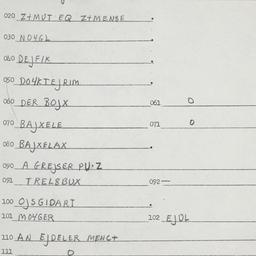 020 Z+MUT EQ Z+MENSE .
030 NO4GL
040 DEJFIK .
050 DO4KTEJRIM .
060 DER BOJX 061 O
070 BAJXELE 071 O
080 BAJXELAX .
090 A GREJSER PU·Z
091 TRELBUX 092 —
100 OJSGIDART .
101 MOYGER 102 EJDL
110 AN EJDELER MENC+
111 O